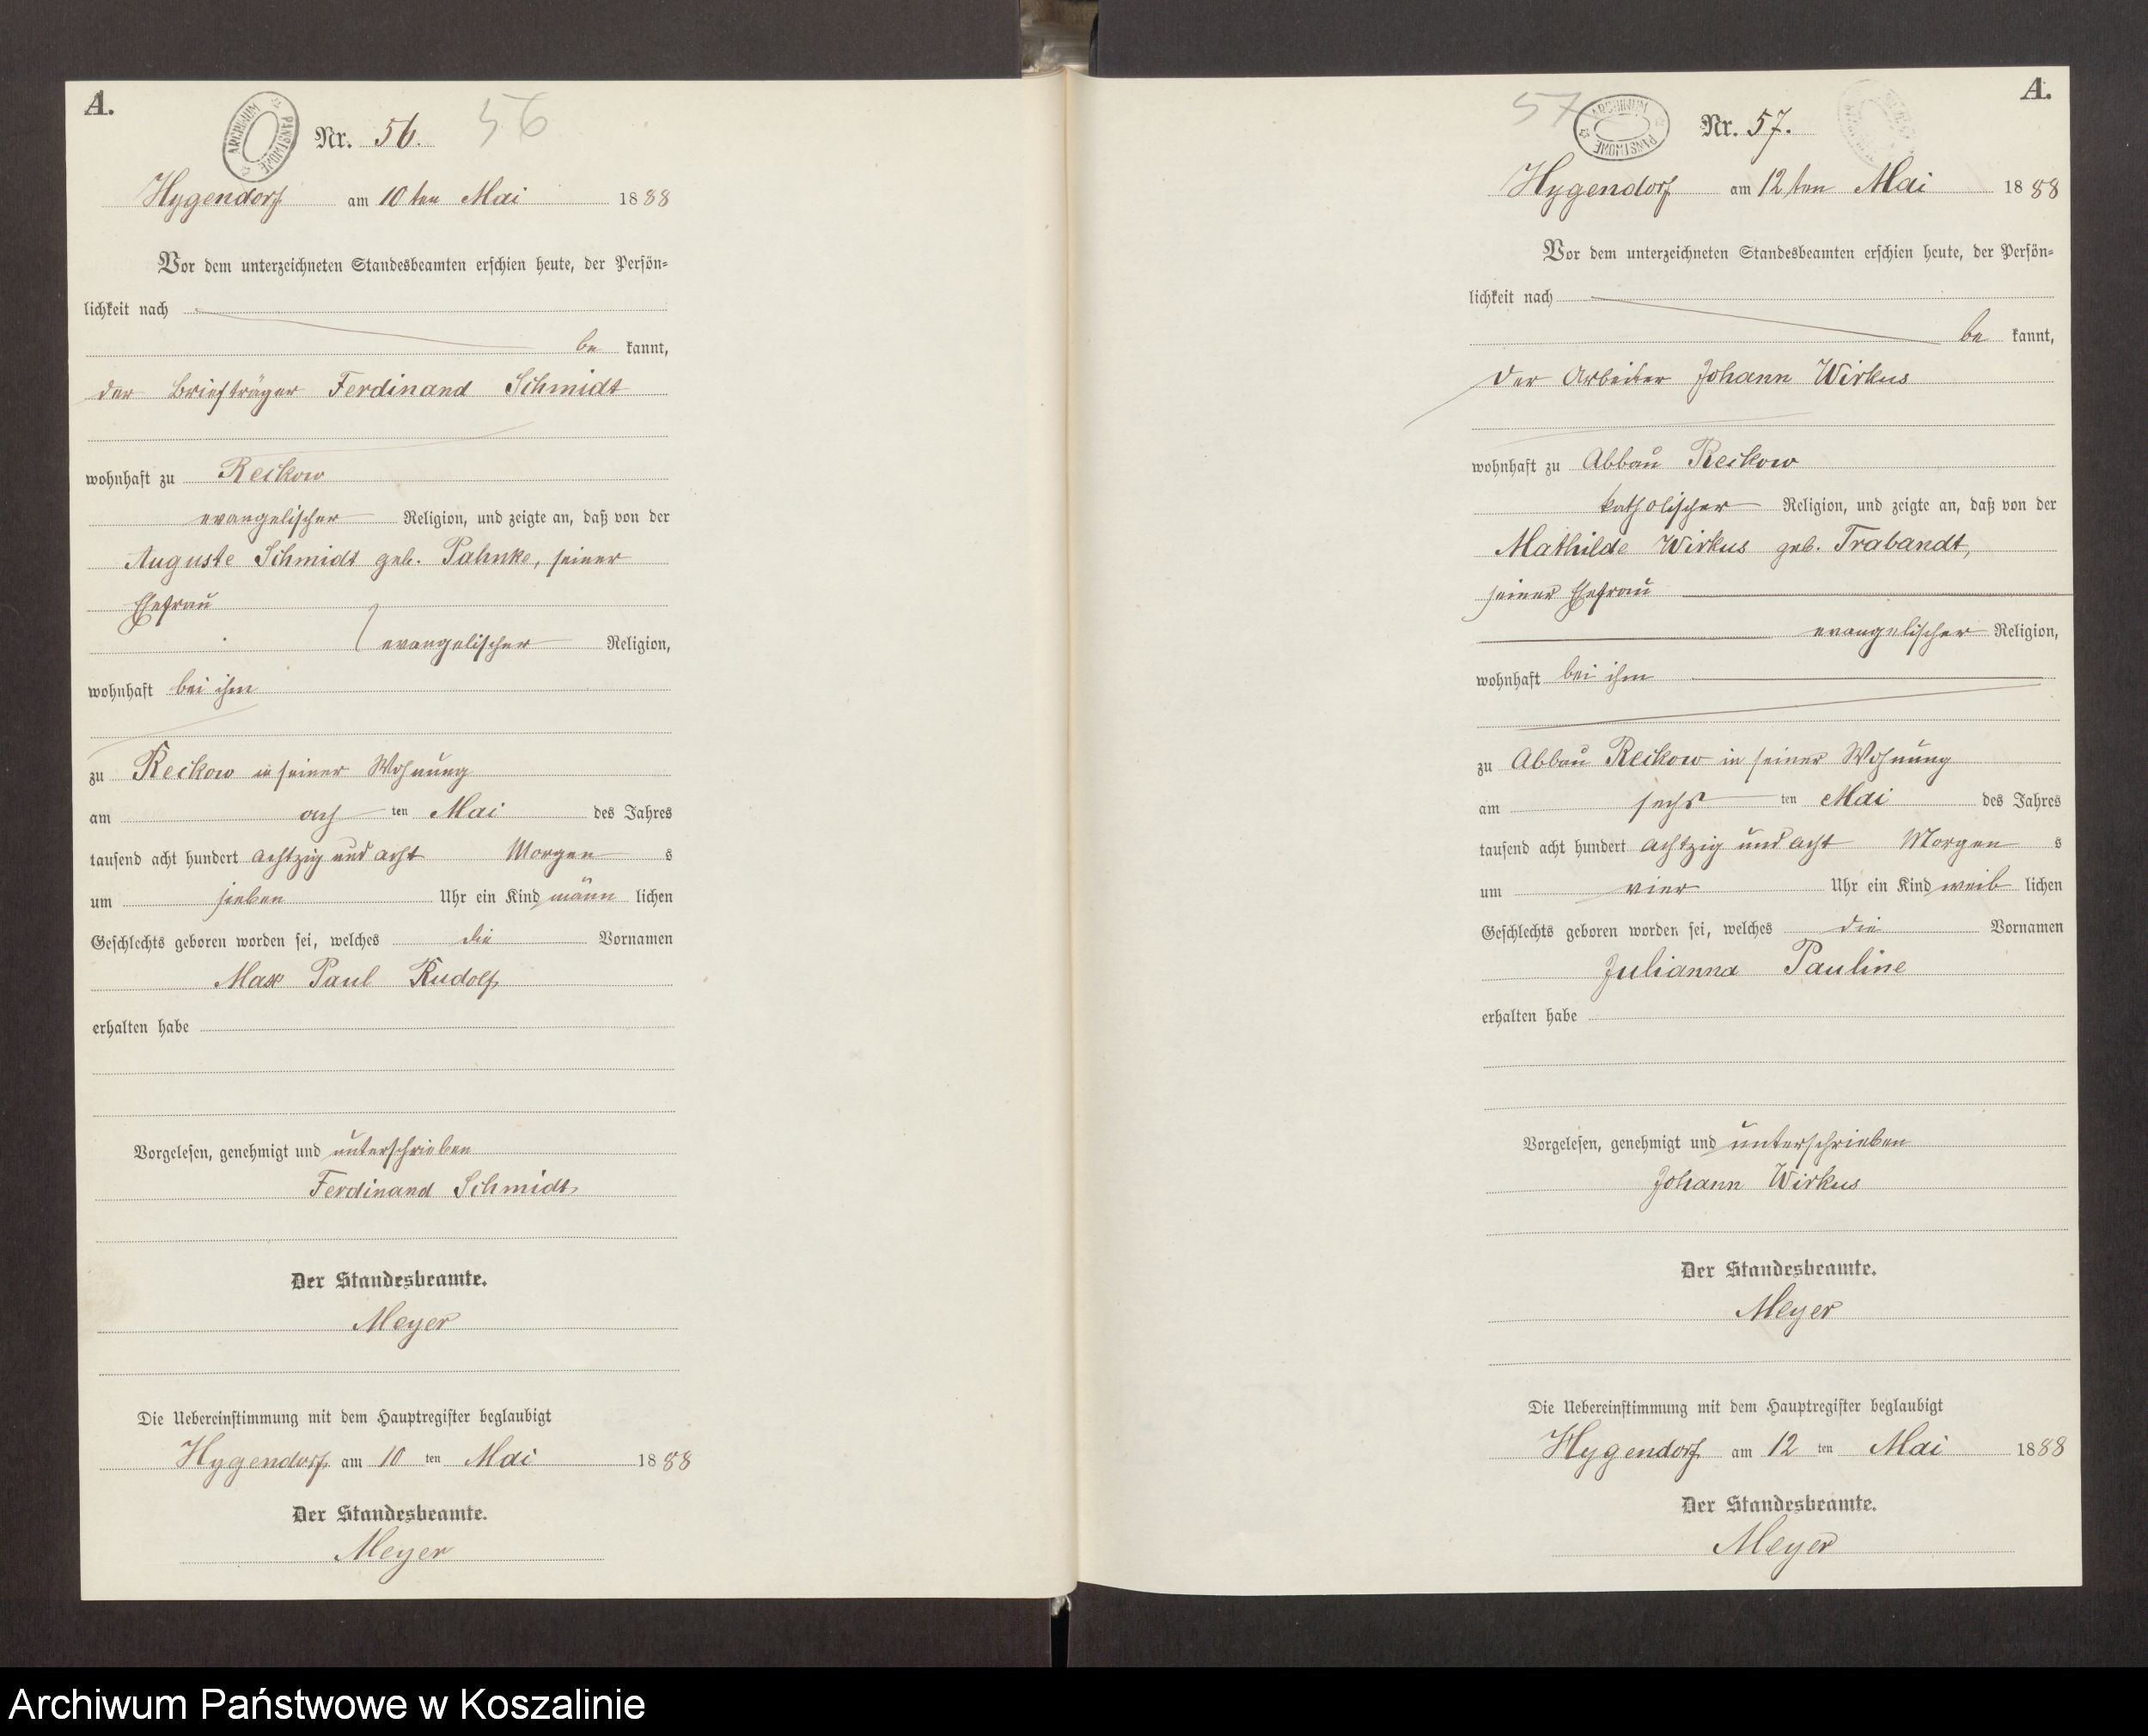 A.
ARCHIWUM PAŃSTWOWE
Nr. 56.
56
Hygendorf am 10 ten Mai 1888
Vor dem unterzeichneten Standesbeamten erschien heute, der Persön-
lichkeit nach
be kannt,
der Briefträger Ferdinand Schmidt
wohnhaft zu Reckow
evangelischer Religion, und zeigte an, daß von der
Auguste Schmidt geb. Pahnke, seiner
Ehefrau
evangelischer Religion,
wohnhaft bei ihm
zu Reckow in seiner Wohnung
am ach ten Mai des Jahres
tausend acht hundert achtzig und acht Morgen s
um sieben Uhr ein Kind männ lichen
Geschlechts geboren worden sei, welches die Vornamen
Max Paul Rudolf
erhalten habe
Vorgelesen, genehmigt und unterschrieben
Ferdinand Schmidt
Der Standesbeamte.
Meyer
Die Uebereinstimmung mit dem Hauptregister beglaubigt
Hygendorf am 10 ten Mai 1888
Der Standesbeamte.
Meyer
A.
57
ARCHIWUM PAŃSTWOWE
Nr. 57.
Hygendorf am 12 ten Mai 1888
Vor dem unterzeichneten Standesbeamten erschien heute, der Persön-
lichkeit nach
be kannt,
der Arbeiter Johann Wirkus
wohnhaft zu Abbau Reckow
katholischer Religion, und zeigte an, daß von der
Mathilde Wirkus geb. Trabandt,
seiner Ehefrau
evangelischer Religion,
wohnhaft bei ihm
zu Abbau Reckow in seiner Wohnung
am sechs ten Mai des Jahres
tausend acht hundert achtzig und acht Morgen s
um vier Uhr ein Kind weib lichen
Geschlechts geboren worden sei, welches die Vornamen
Julianna Pauline
erhalten habe
Vorgelesen, genehmigt und unterschrieben
Johann Wirkus
Der Standesbeamte.
Meyer
Die Uebereinstimmung mit dem Hauptregister beglaubigt
Hygendorf am 12 ten Mai 1888
Der Standesbeamte.
Meyer
Archiwum Państwowe w Koszalinie